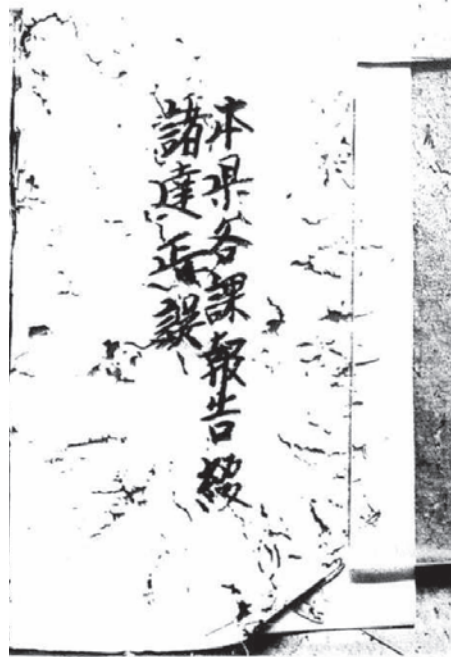 本県各課報告綴
諸達正誤